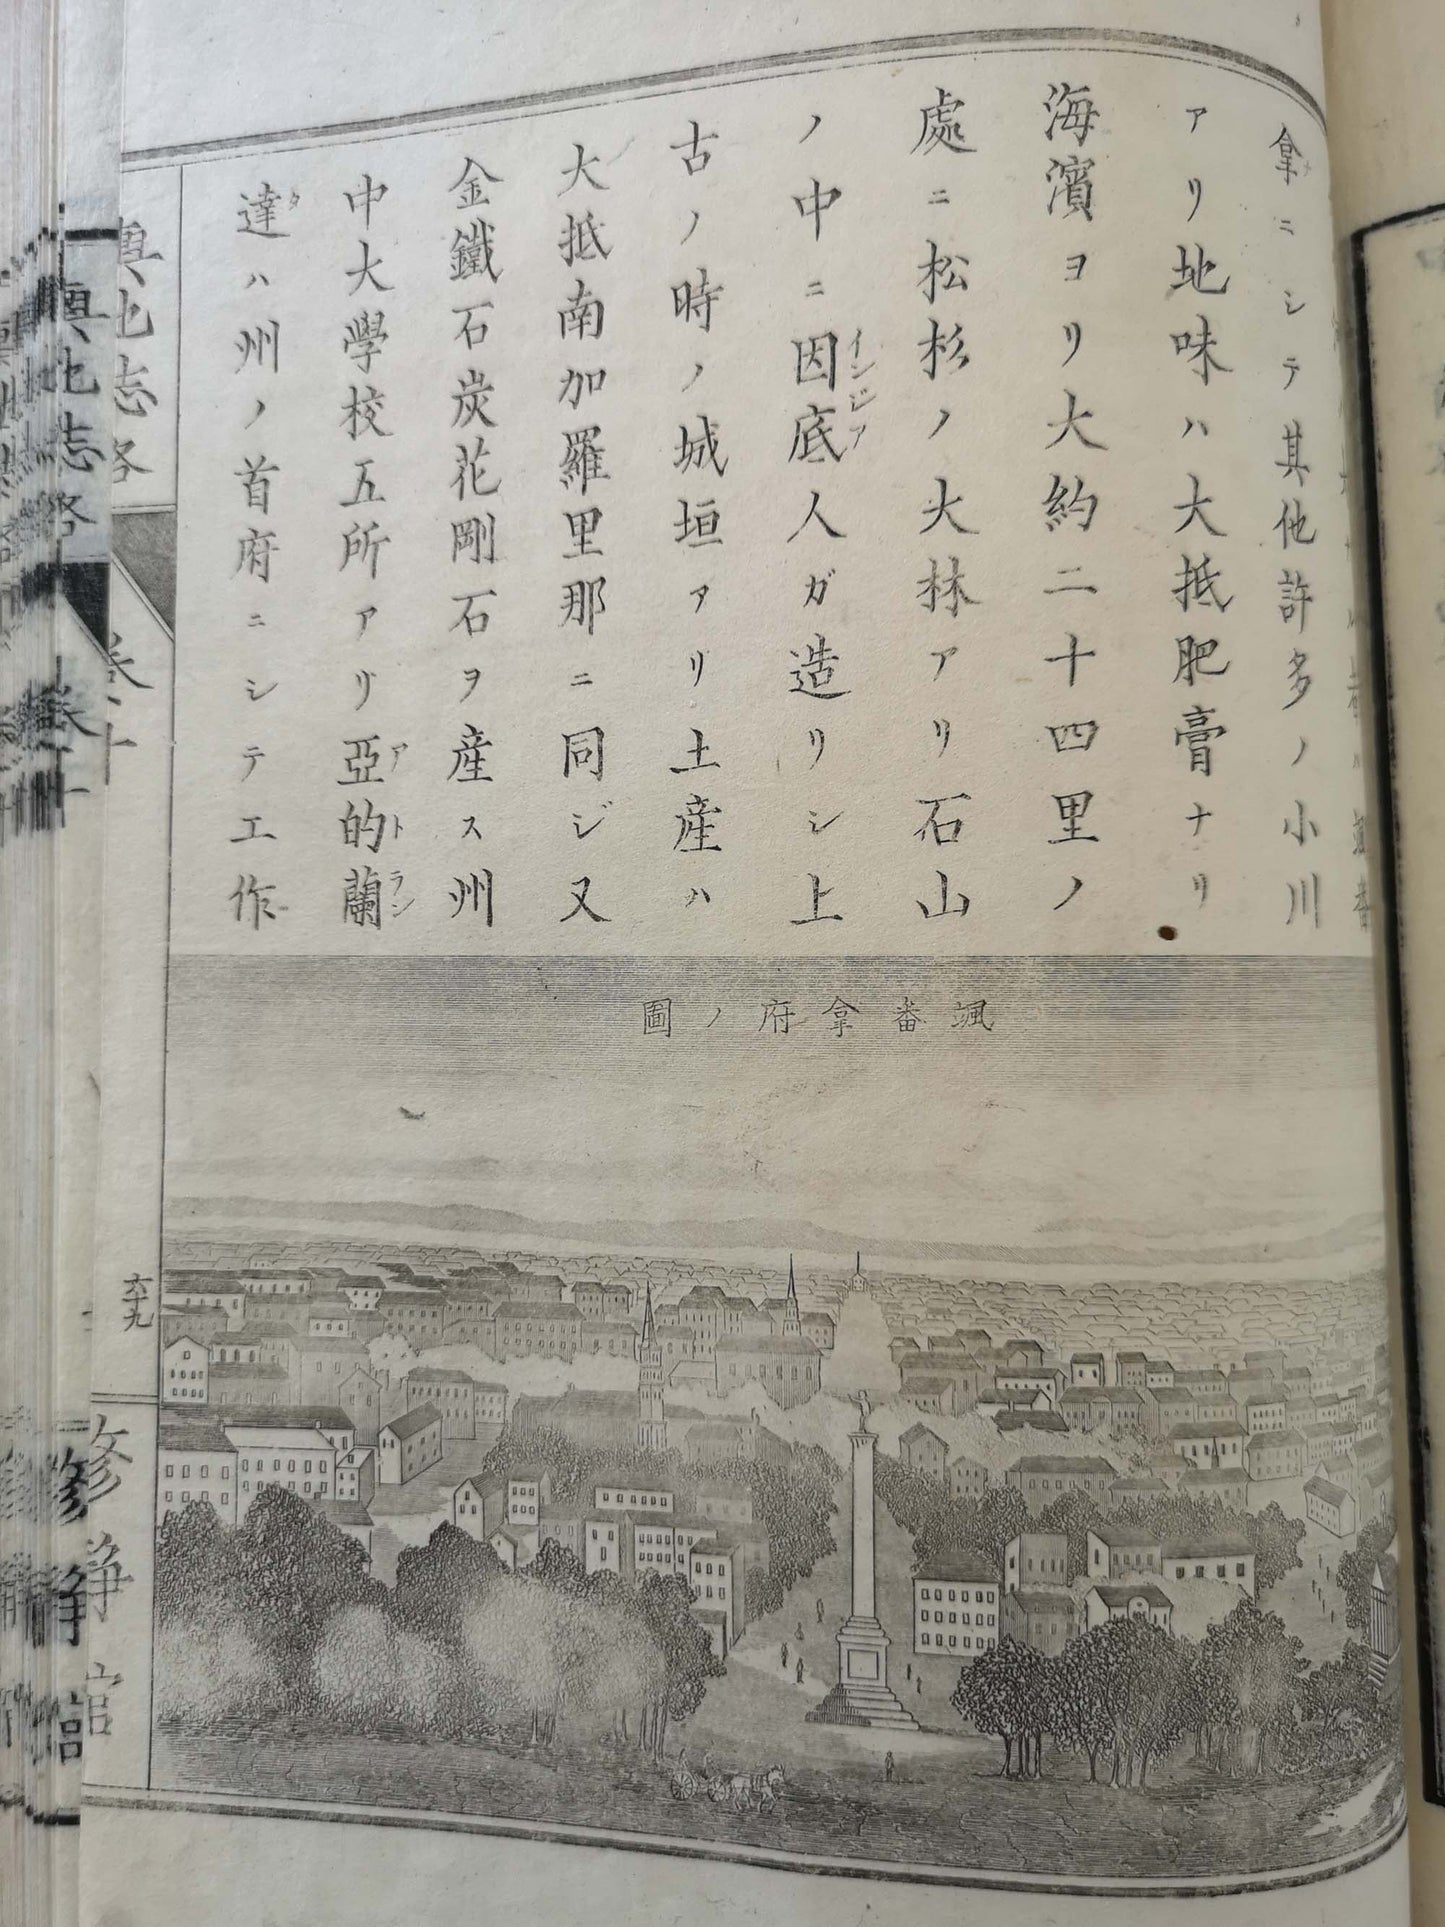 拿ニシテ其他許多ノ小川
アリ地味ハ大抵肥膏ナリ
海濱ヨリ大約二十四里ノ
處ニ松杉ノ大林アリ石山
ノ中ニ因底人ガ造リシ上
インジア
古ノ時ノ城垣アリ土産ハ
大抵南加羅里那ニ同ジ又
金鐵石炭花剛石ヲ産ス州
中大學校五所アリ亞的蘭
アトラン
達ハ州ノ首府ニシテ工作
タ
颯番拿府ノ圖
輿地志略
卷十
六十九
修靜館